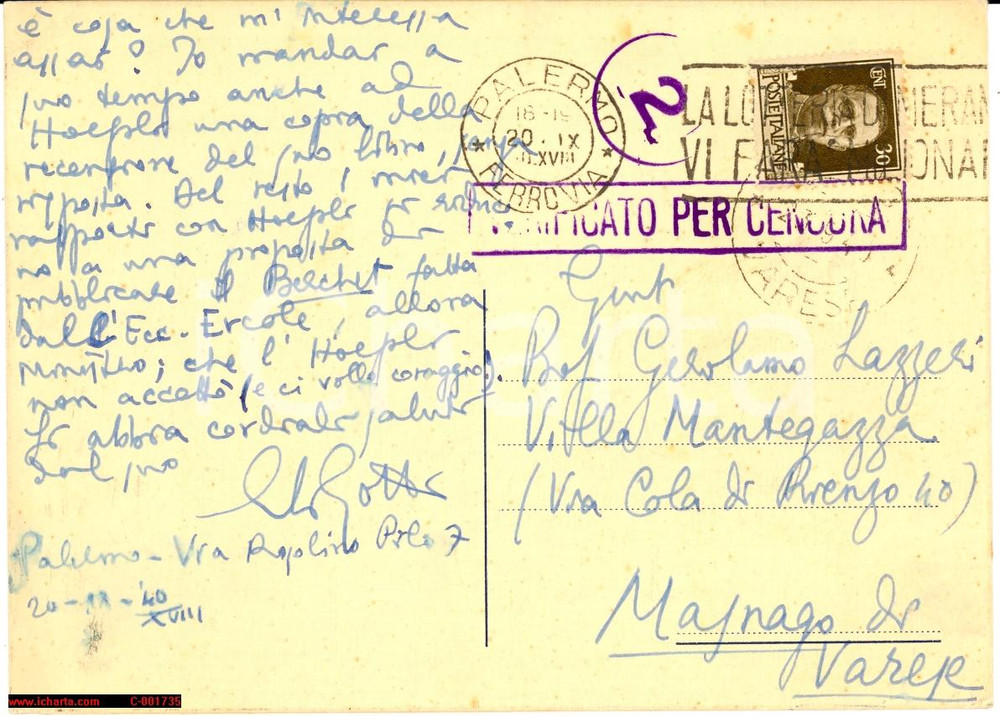 è cosa che m'interessa
assai? Io mandai a
suo tempo anche ad
Hoepli una copia della
recensione del suo libro, senza
risposta. Del resto i miei
rapporti con Hoepli si
no a una proposta di
pubblicare il Berchet fatta
dall'Ecc. Ercole, allora
Ministro; che l'Hoepli
non accettò (e ci volle coraggio!).
Si abbia cordiali saluti
dal suo
Li Gotti
Palermo - Via Rosolino Pilo 7
20 - IX - '40
XVIII
PALERMO
18-19
20 . IX
XVIII
FERROVIA
2
LA LOTTERIA DI MERANO
VI FARÀ MILIONARI
POSTE ITALIANE
CENT 30
VERIFICATO PER CENSURA
VARESE
Gent
Prof Gerolamo Lazzeri
Villa Mantegazza
(Via Cola di Rienzo 40)
Masnago di
Varese
icharta
www.icharta.com C-001735